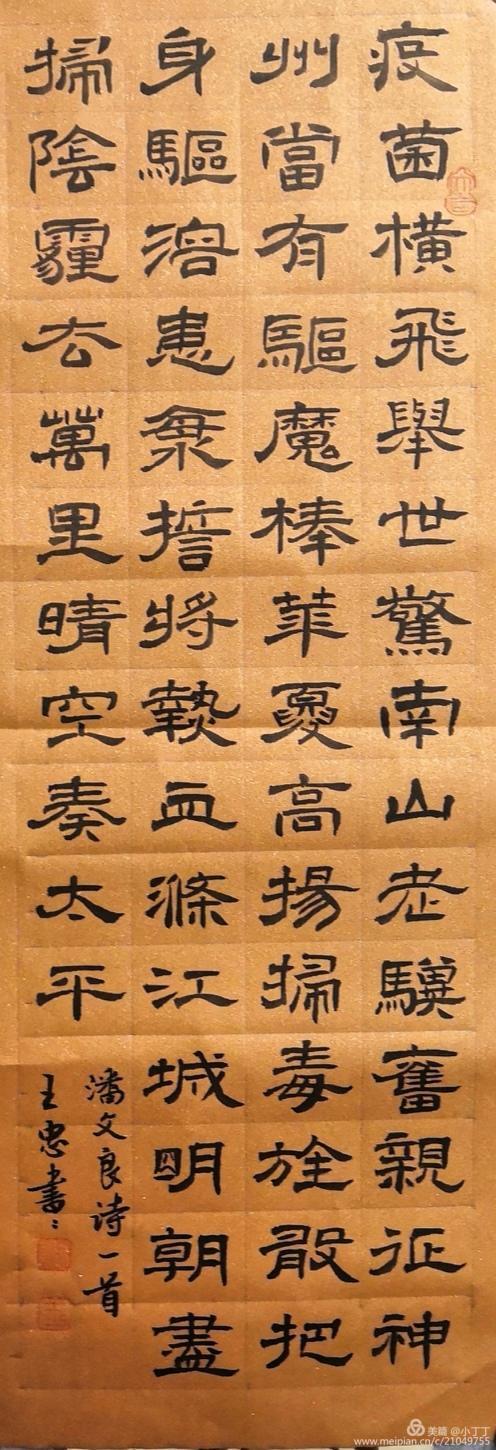 疫菌橫飛舉世驚南山老驥奮親征神
州當有驅魔棒華夏高揚掃毒旌敢把
身驅溶患衆誓將熱血滌江城明朝盡
掃陰霾去萬里晴空奏太平
潘文良诗一首
王忠書
美篇 @小丁丁
www.meipian.cn/c/21049755